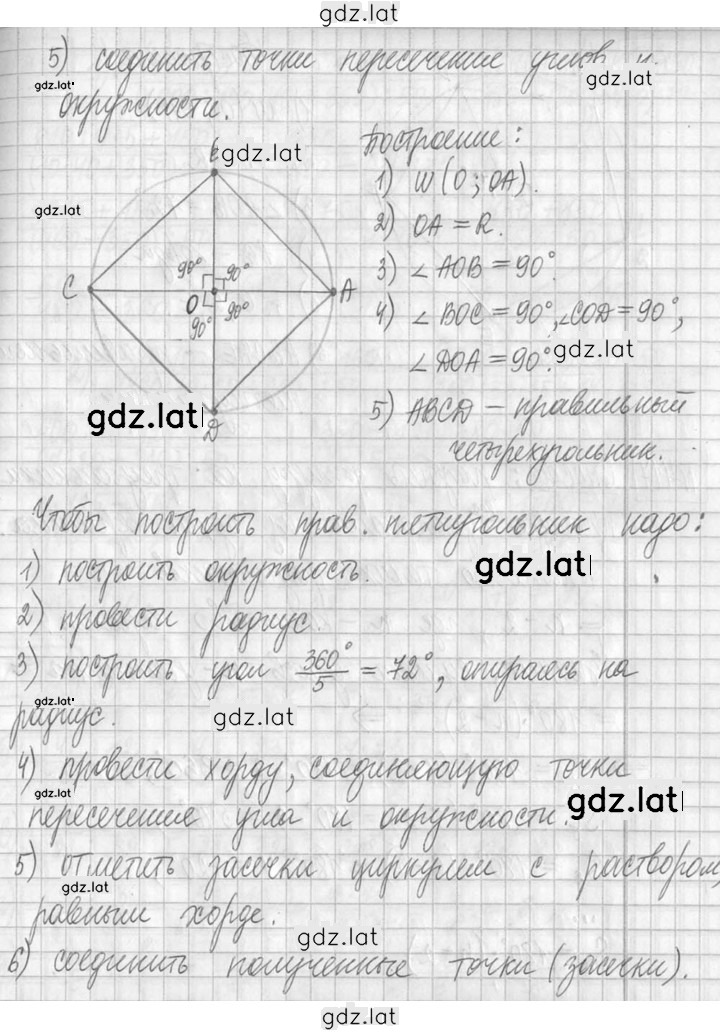 gdz.lat
5) соединить точки пересечение углов и
gdz.lat
gdz.lat
окружности.
Построение:
B
gdz.lat
1) W(O; OA).
gdz.lat
2) OA = R.
90° 90°
3) ∠AOB = 90°.
C O A
90° 90°
4) ∠BOC = 90°, ∠COD = 90°,
∠DOA = 90°.
gdz.lat
gdz.lat
D
5) ABCD – правильный
четырехугольник.
Чтобы построить прав. пятиугольник надо:
1) построить окружность.
gdz.lat
2) провести радиус.
3) построить угол 360°/5 = 72°, опираясь на
gdz.lat
радиус.
gdz.lat
4) провести хорду, соединяющую точки
gdz.lat
пересечения угла и окружности.
gdz.lat
5) отметить засечки циркулем с раствором,
gdz.lat
равным хорде.
gdz.lat
6) соединить полученные точки (засечки).
gdz.lat